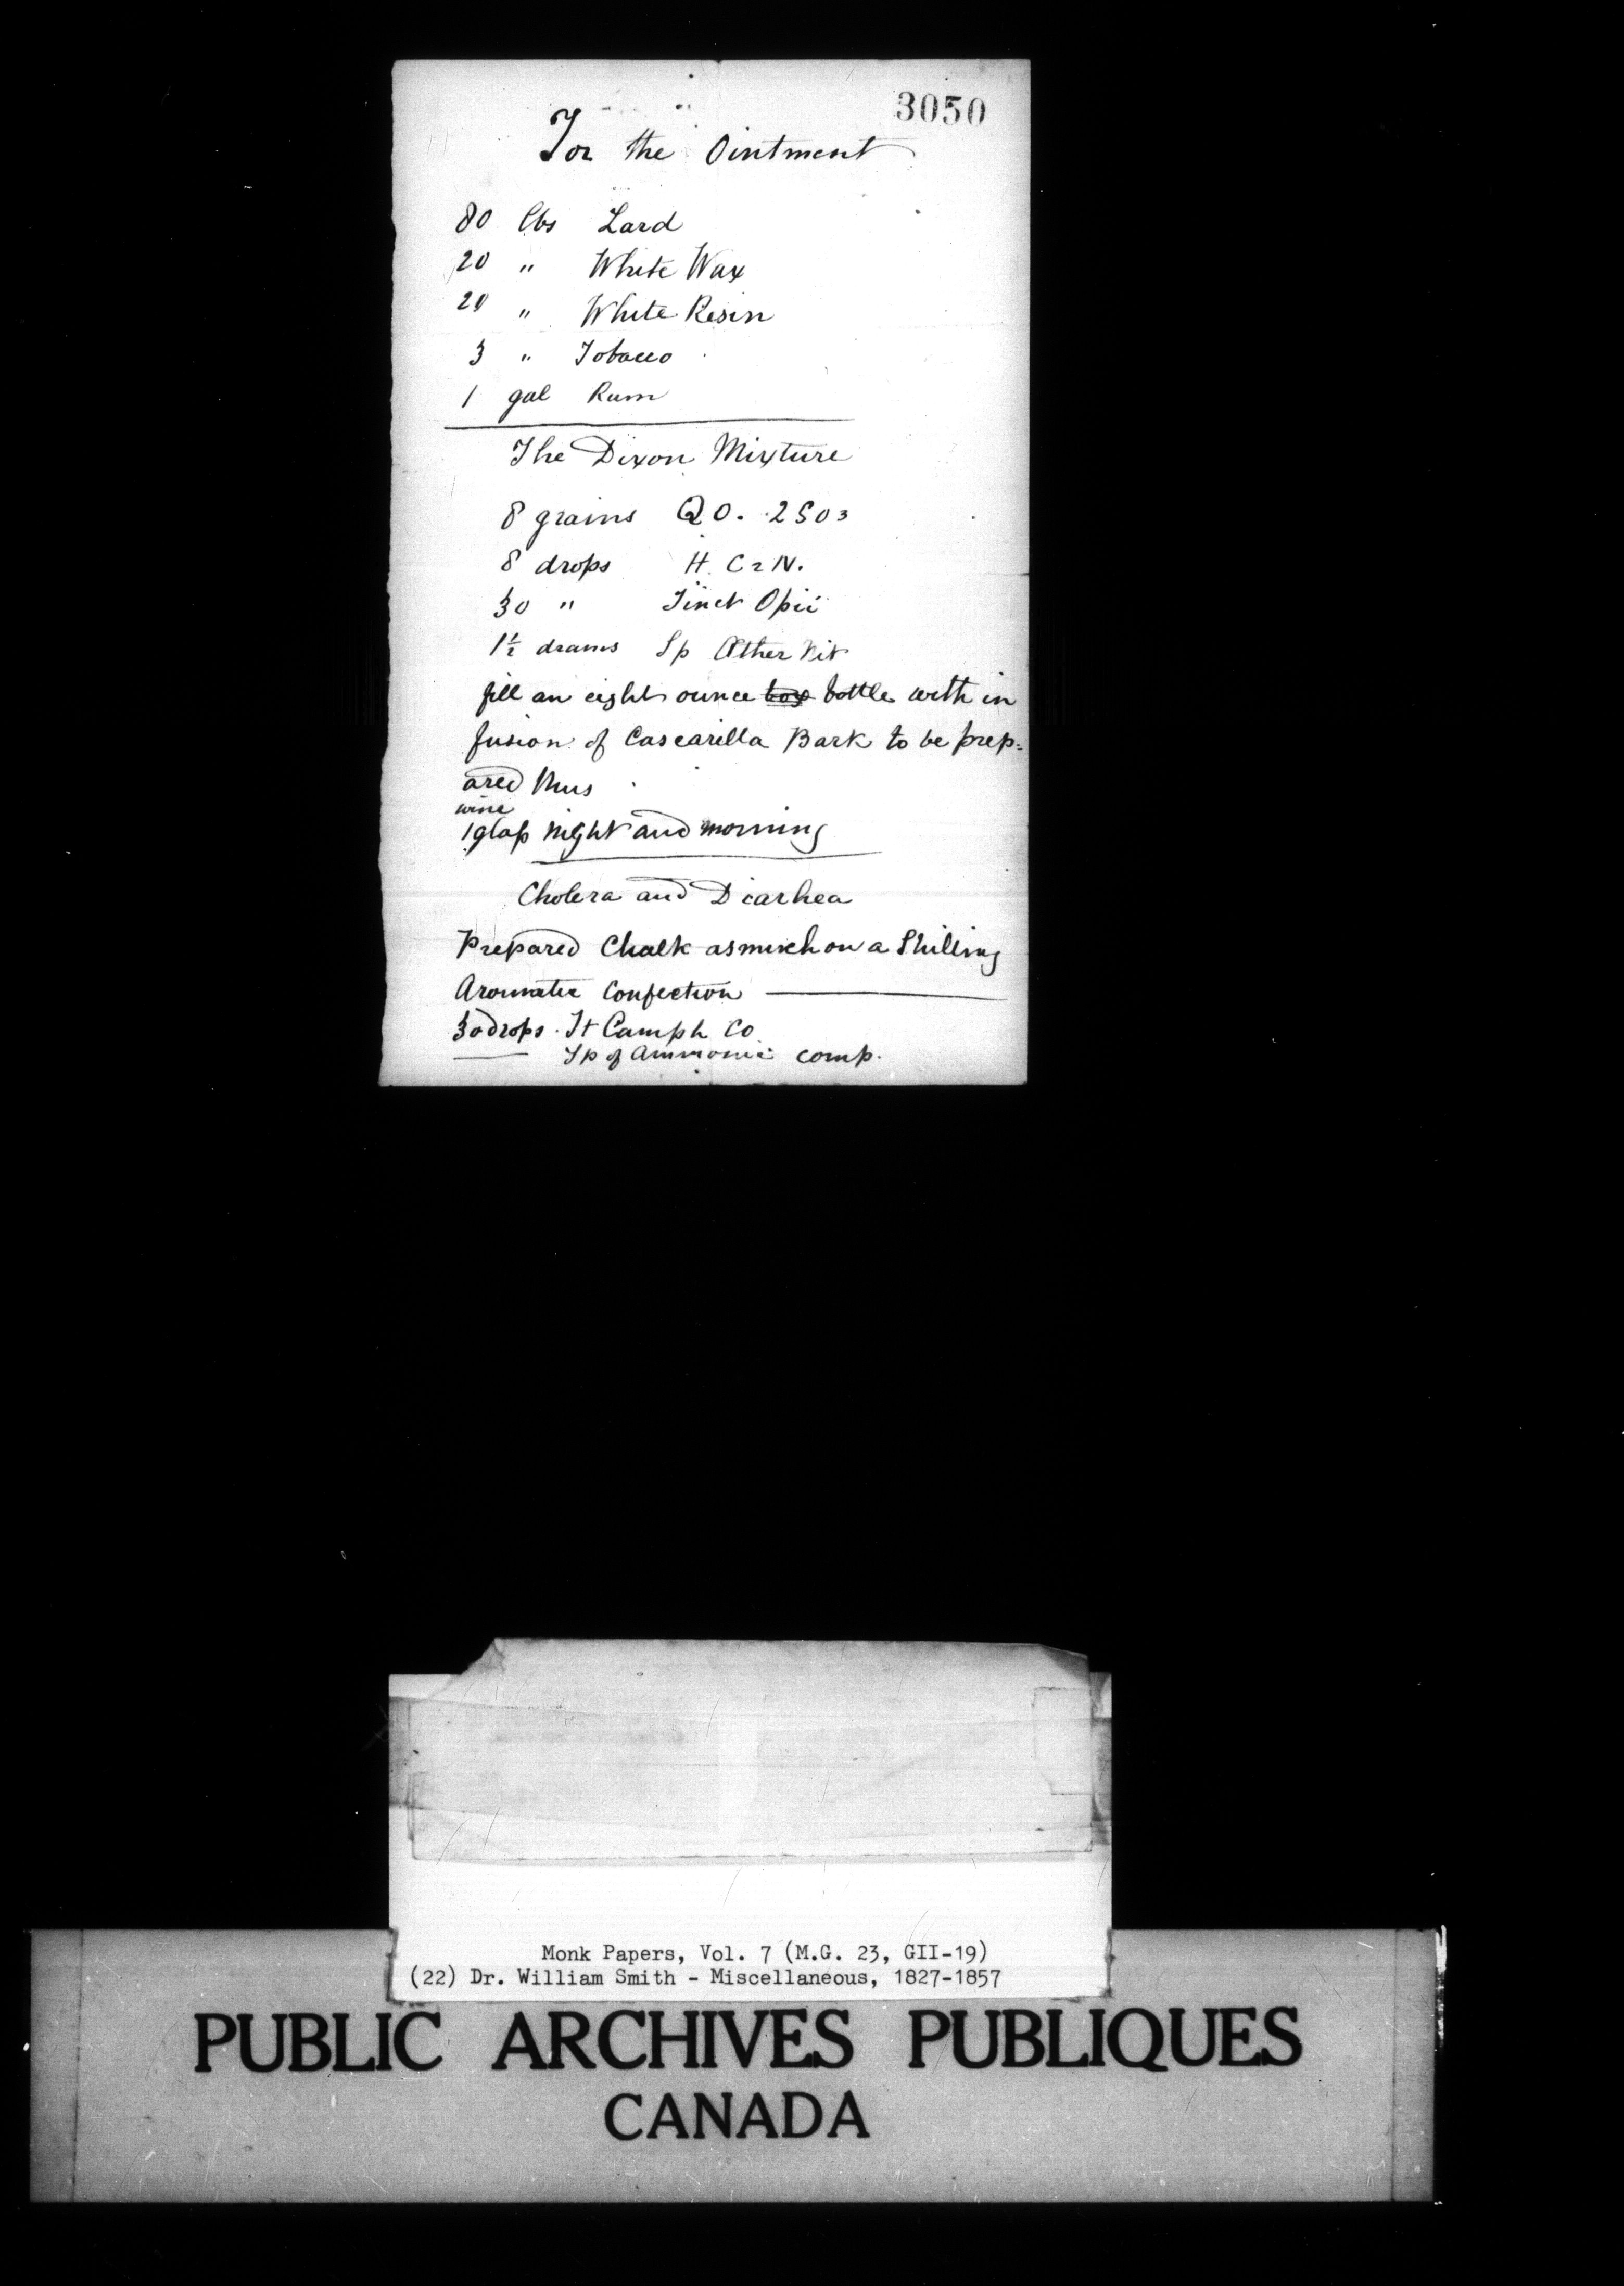 3050
For the Ointment
80 lbs Lard
20 " White Wax
20 " White Resin
3 " Tobacco
1 gal Rum
The Dixon Mixture
8 grains Q O. 2 S O 3
8 drops H. C 2 N.
30 " Tinct Opii
1½ drams Sp Æther Nit
fill an eight ounce box bottle with in
fusion of Cascarilla Bark to be prep=
ared thus
wine
1 glass night and morning
Cholera and Diarhea
Prepared Chalk as much on a Shilling
Aromatic Confection
30 drops Tt Camph Co
Sp of Ammonia comp.
Monk Papers, Vol. 7 (M.G. 23, GII-19)
(22) Dr. William Smith - Miscellaneous, 1827-1857
PUBLIC ARCHIVES PUBLIQUES
CANADA